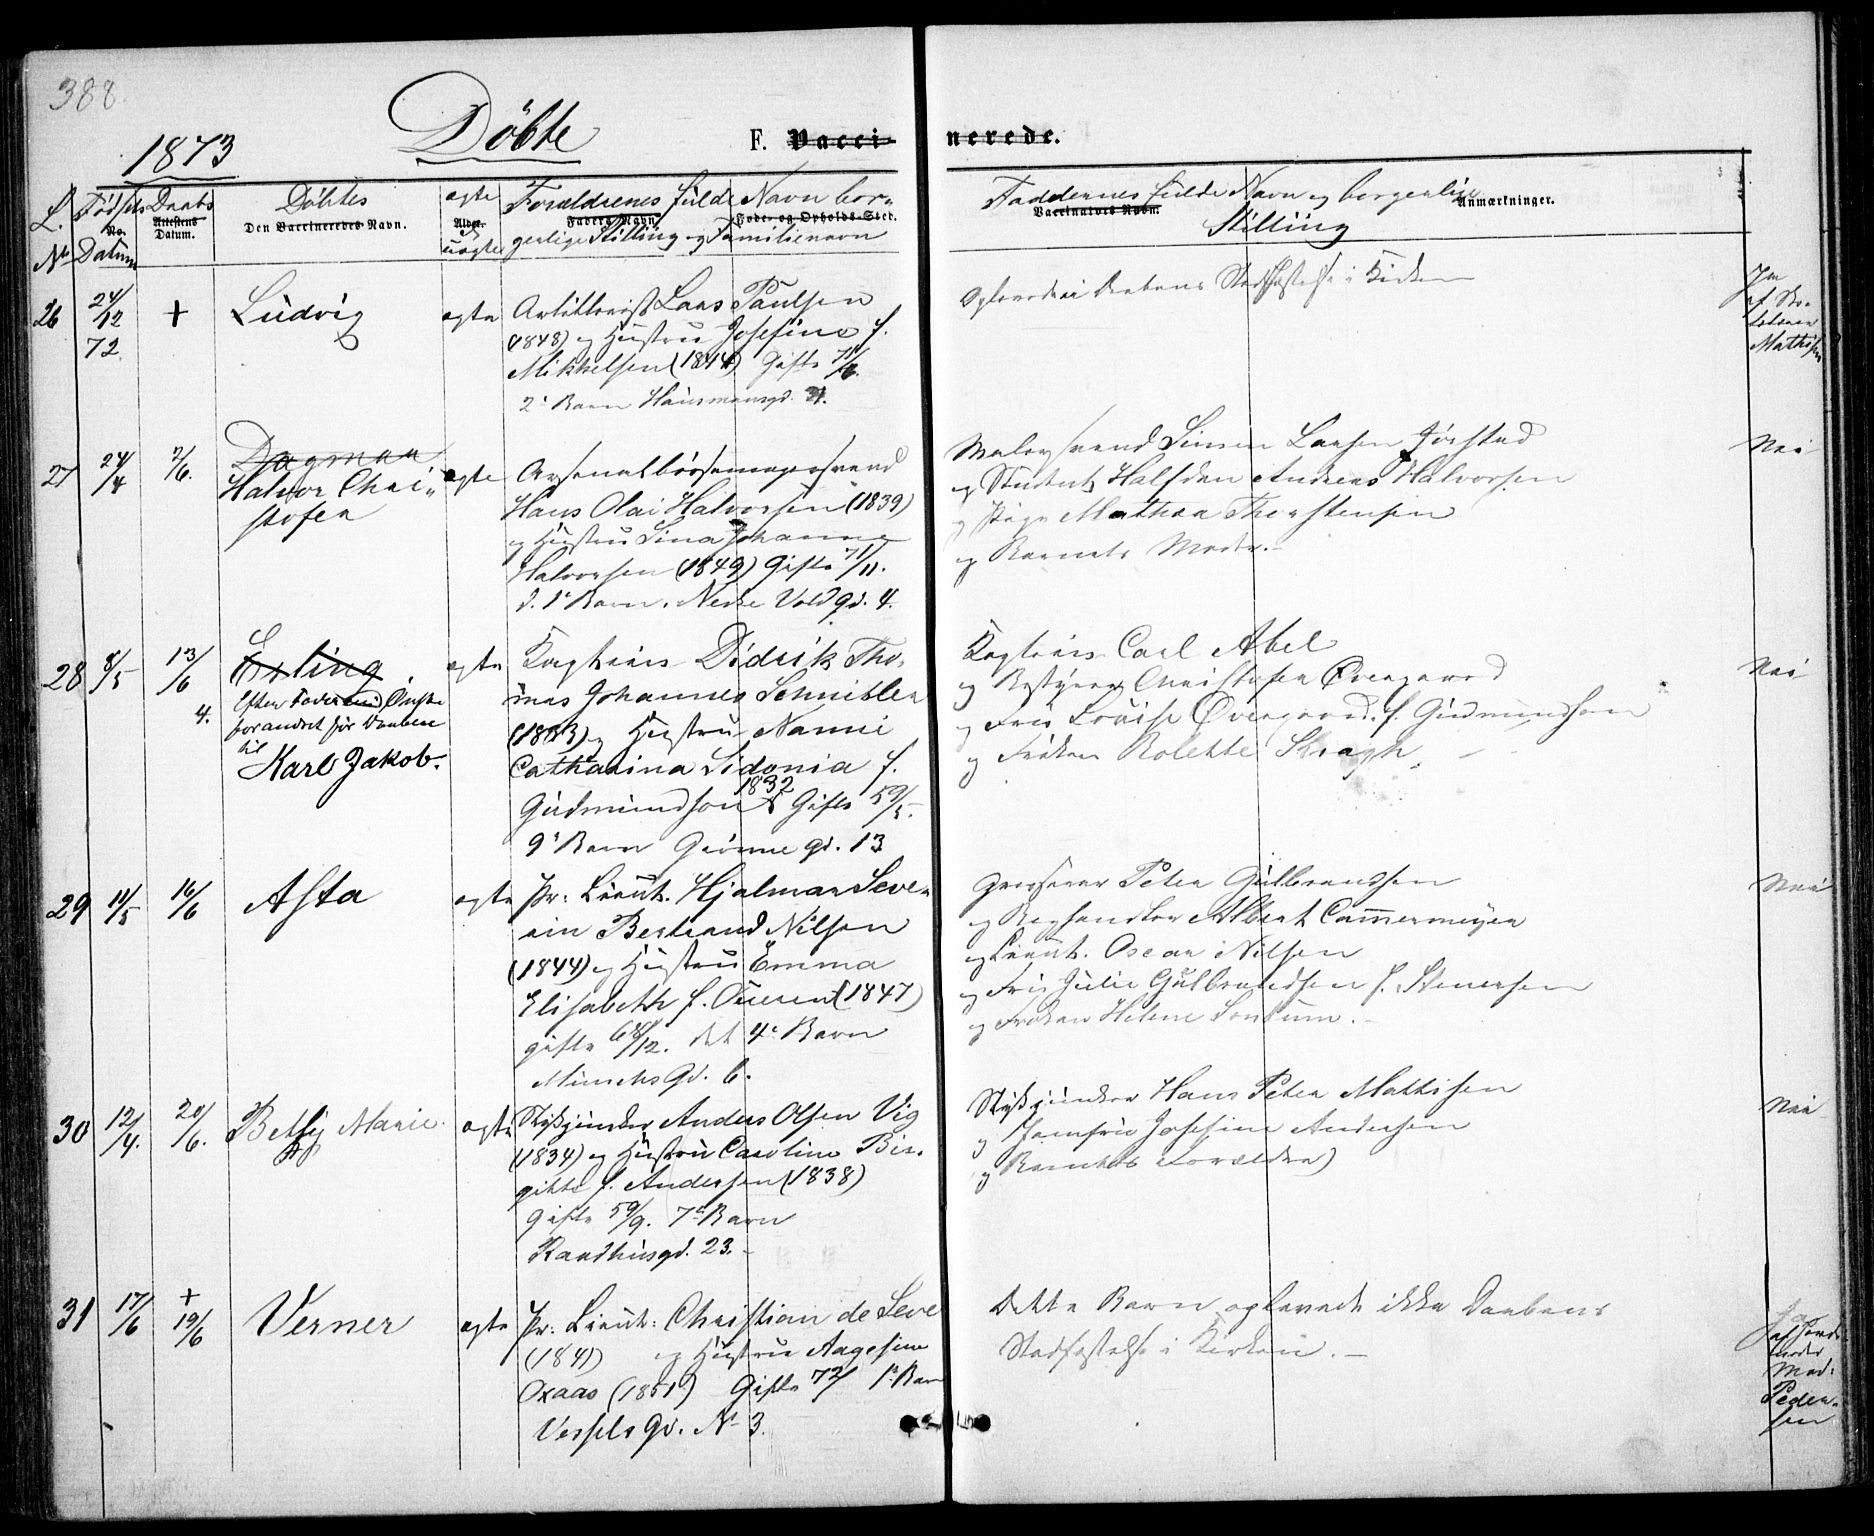 388
1873
Döbte
F. Vaccinerede.
L. No
Födsels Datum
No.
Daabs
Attestens Datum.
Döbtes
Den Vaccineredes Navn.
ægte og uægte
Alder.
Forældrenes fulde Navn bor-
Faders Navn
Føde- og Opholds-Sted.
gerlige Stilling og Familienavn
Faddernes fulde Navn og borgerlige
Vaccinateurs Navn.
Anmærkninger.
Stilling
26
24/12 72
+
Ludvig
ægte
Artillerist Lars Paulsen
(1848) og Hustru Josefine f.
Mikkelsen (1844) Gifte
2' Barn Hausmannsgd.
Oplevede ei Daabens Stadfæstelse i Kirken
Mathisen
27
24/4
2/6.
Dagmar
Halvor Chri-
stofer
ægte
Arsenalbørsemagersvend
Hans Olai Halvorsen (1839)
og Hustru Lina Johanne
Halvorsen (1849) Gifte 71/11.
d. 1' Barn. Nedre Voldgd. 4.
Malersvend Simen Larsen Jörstad
og Student Halfdan Andreas Halvorsen
og Pige Mathea Thorstensen
og Barnets Moder.-
Nei
28
8/5
13/6
4.
Erling
Efter Faderens Ønske
forandret før Daaben
til
Karl Jakob.
ægte
Kaptein Didrik Tho-
mas Johannes Schnitler
(1833) og Hustru Nanni
Catharina Sidonia f.
Gudmundson 1832 Gifte 59/5.
9' Barn Grønne gd. 13
Kaptein Carl Abel
og Bestyrer Christofer Övergaard
og Fru Louise Övergaard f. Gudmundson
og Frøken Bolette Kragh.
Nei
29
11/5
16/6
Asta
ægte
Pr: Lieut. Hjalmar Seve-
rin Bertrand Nilsen
(1844) og Hustru Emma
Elisabeth f. Ouren (1847)
gifte 68/12. det 4' Barn
Munchs Gd. 6.
Grosserer Peter Gulbranssen
og Boghandler Albert Cammermeyer
og Lieut. Oscar Nilsen
og Fru Julie Gulbrandsen f. Stenersen
og Frøken Helene Sontum.-
Nei
30
12/4.
20/6.
Betsy Marie
ægte
Stykjunker Anders Olsen Vig
(1834) og Hustru Caroline Bir-
gitte f. Andersen (1838)
Gifte 59/9. 7' Barn
Raadhusgd. 23.-
Stykjunker Hans Peter Mathisen
og Jomfru Josefine Andersen
og Barnets Forældre)
Nei
31
17/6
+
19/6
Verner
ægte
Pr: Lieut: Christian de Seve
(1841) og Hustru Aagesine
Oxaas (1851) Gifte 72/ 1' Barn
Vessels Gd. No 3.
Dette Barn oplevede ikke Daabens
Stadfæstelse i Kirken.-
Ja
af Jorde-
moder
Mad:
Peder-
sen